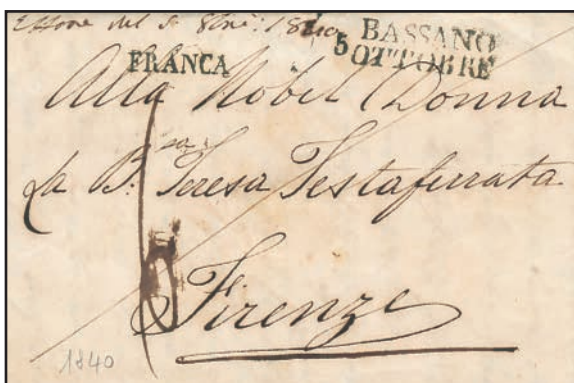 del 5 8bre: 1840
BASSANO
5 OTTOBRE
FRANCA
Alla Nobil Donna
La B.sa Teresa Testaferrata
Firenze
1840